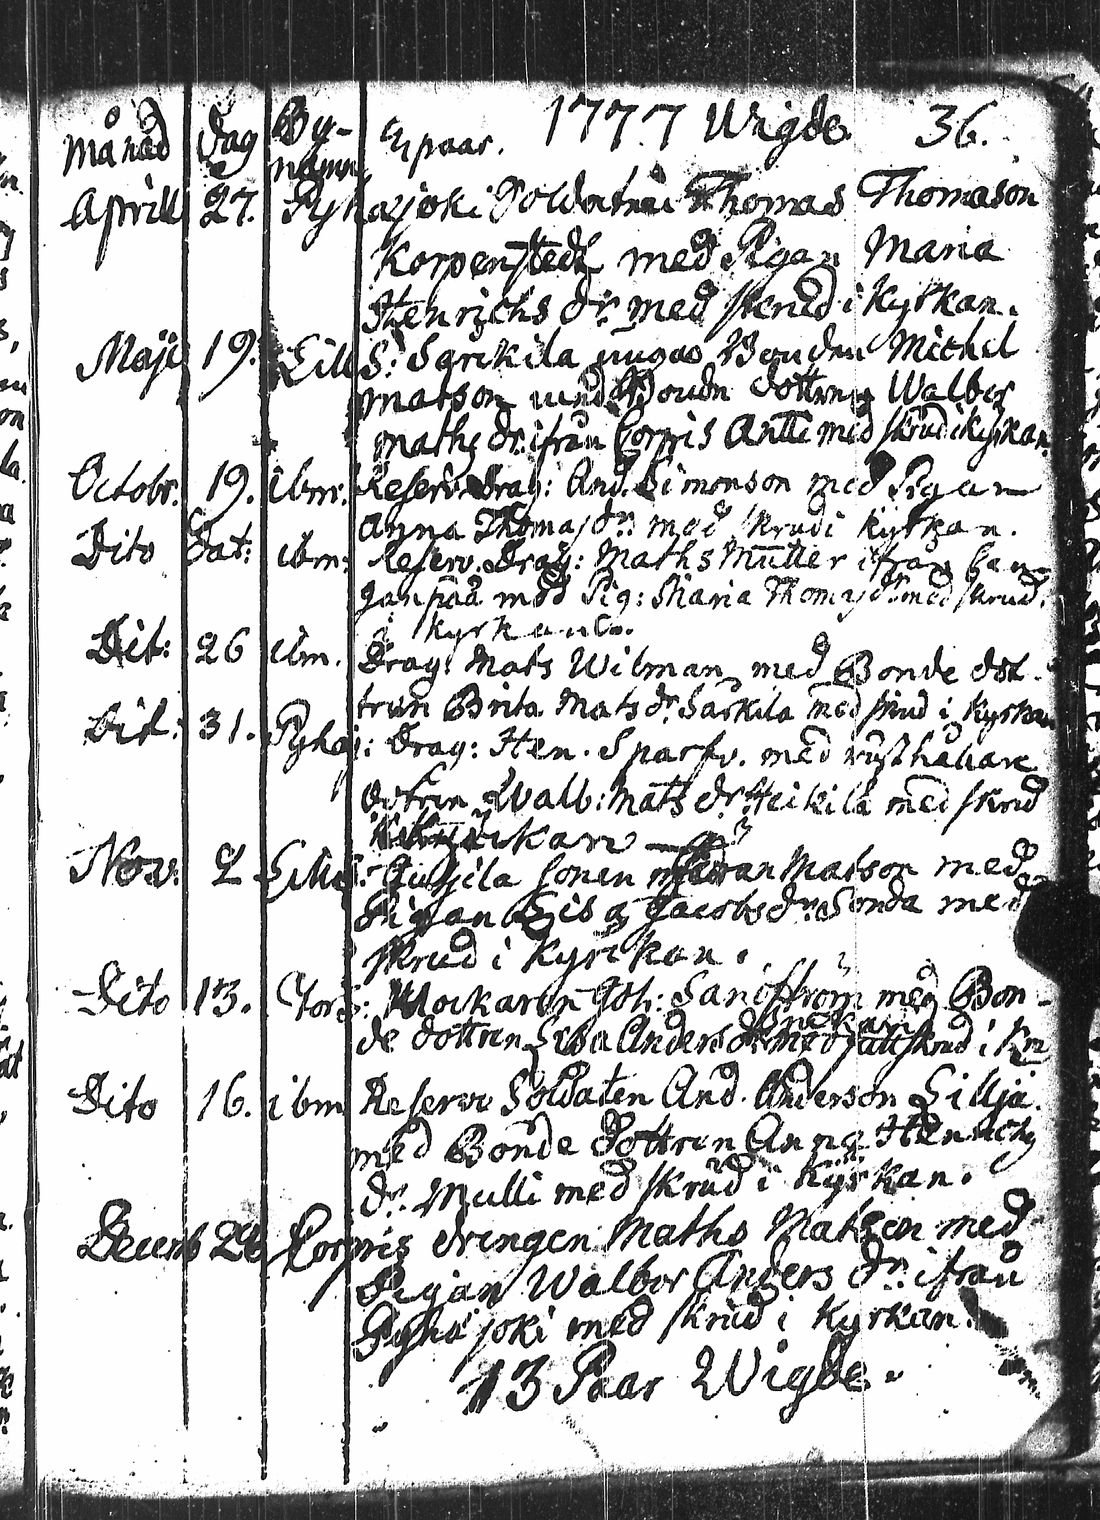 månad Dag By-namn paar. 1777 Wigde 36.
Aprill 27. Pyhajoki Soldaten Thomas Thomason
Korpenstedt med Pigan Maria
Henrichs dr. med skrud i kyrkan.
Maji 19. S: Särkilä ungas Bonden Michel
matson Bondn dottren Walbor
maths dr. ifrån Corpris Antti med skrud i kyrkan
Octobr. 19. ibm: Reserv. Drag: And. Simonson med Pigan
Anna Thomas dr. med skrud i kyrkan.
Dito Dat: ibm: Reserv. Drag: Maths Muller ifrån
med Pig: Maria Thomas dr. med skrud.
i kyrkan.
Dit: 26 ibm. Drag: Mats Wilman med Bonde dot-
tren Brita Mats dr. Särkilä med skrud i kyrkan
Dit: 31. Pyhaj: Drag: Hen. Sparfv. med rusthållare
dottren Walb: Mats dr. Heikilä med skrud
kyrkan
Nov: 2 sonen Matson med
Pigan Lisa Jacobs dr. Sonda med
skrud i kyrkan.
Dito 13. Klockaren Joh: Sandström med Bon-
de dottren Lisa Anders dr. med skrud i
Dito 16. ibm Reserv Soldaten And. Anderson Lillja.
med Bonde Dottren Anna Henrichs
dr. Mulli med skrud i kyrkan.
Decemb 26 Corpris drengen Maths Matson med
Pigan Walbor Anders dr. ifrån
Pyhäjoki med skrud i kyrkan.
13 Paar Wigde.